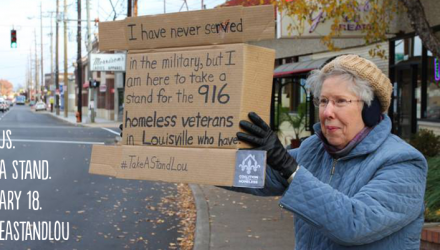 I have never served
in the military, but I
am here to take a
stand for the 916
homeless veterans
in Louisville who have
#TakeAStandLou
COALITION
US.
A STAND.
ARY 18.
EASTANDLOU